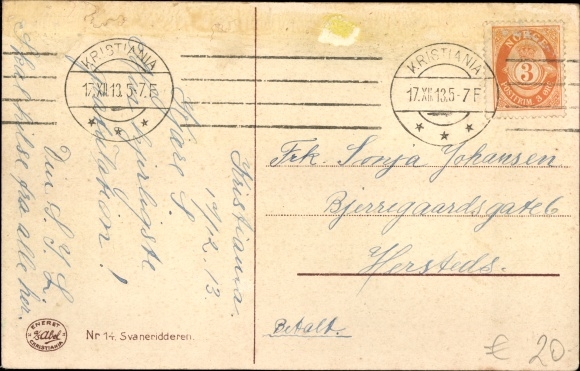 KRISTIANIA
17.XII.13.5-7F
KRISTIANIA
17.XII.13.5-7F
NORGE
3
POSTFRIM. 3 ØRE
Kristiania.
17/12. 13.
Kjære S
hjerligste
gratulation!
Din S. J. L.
hilse fra alle her.
Frk. Sonja Johansen
Bjerregaardsgate 6
Hersteds.
Betalt.
ENERET
Abel
CHRISTIANIA
Nr 14. Svaneridderen.
€ 20